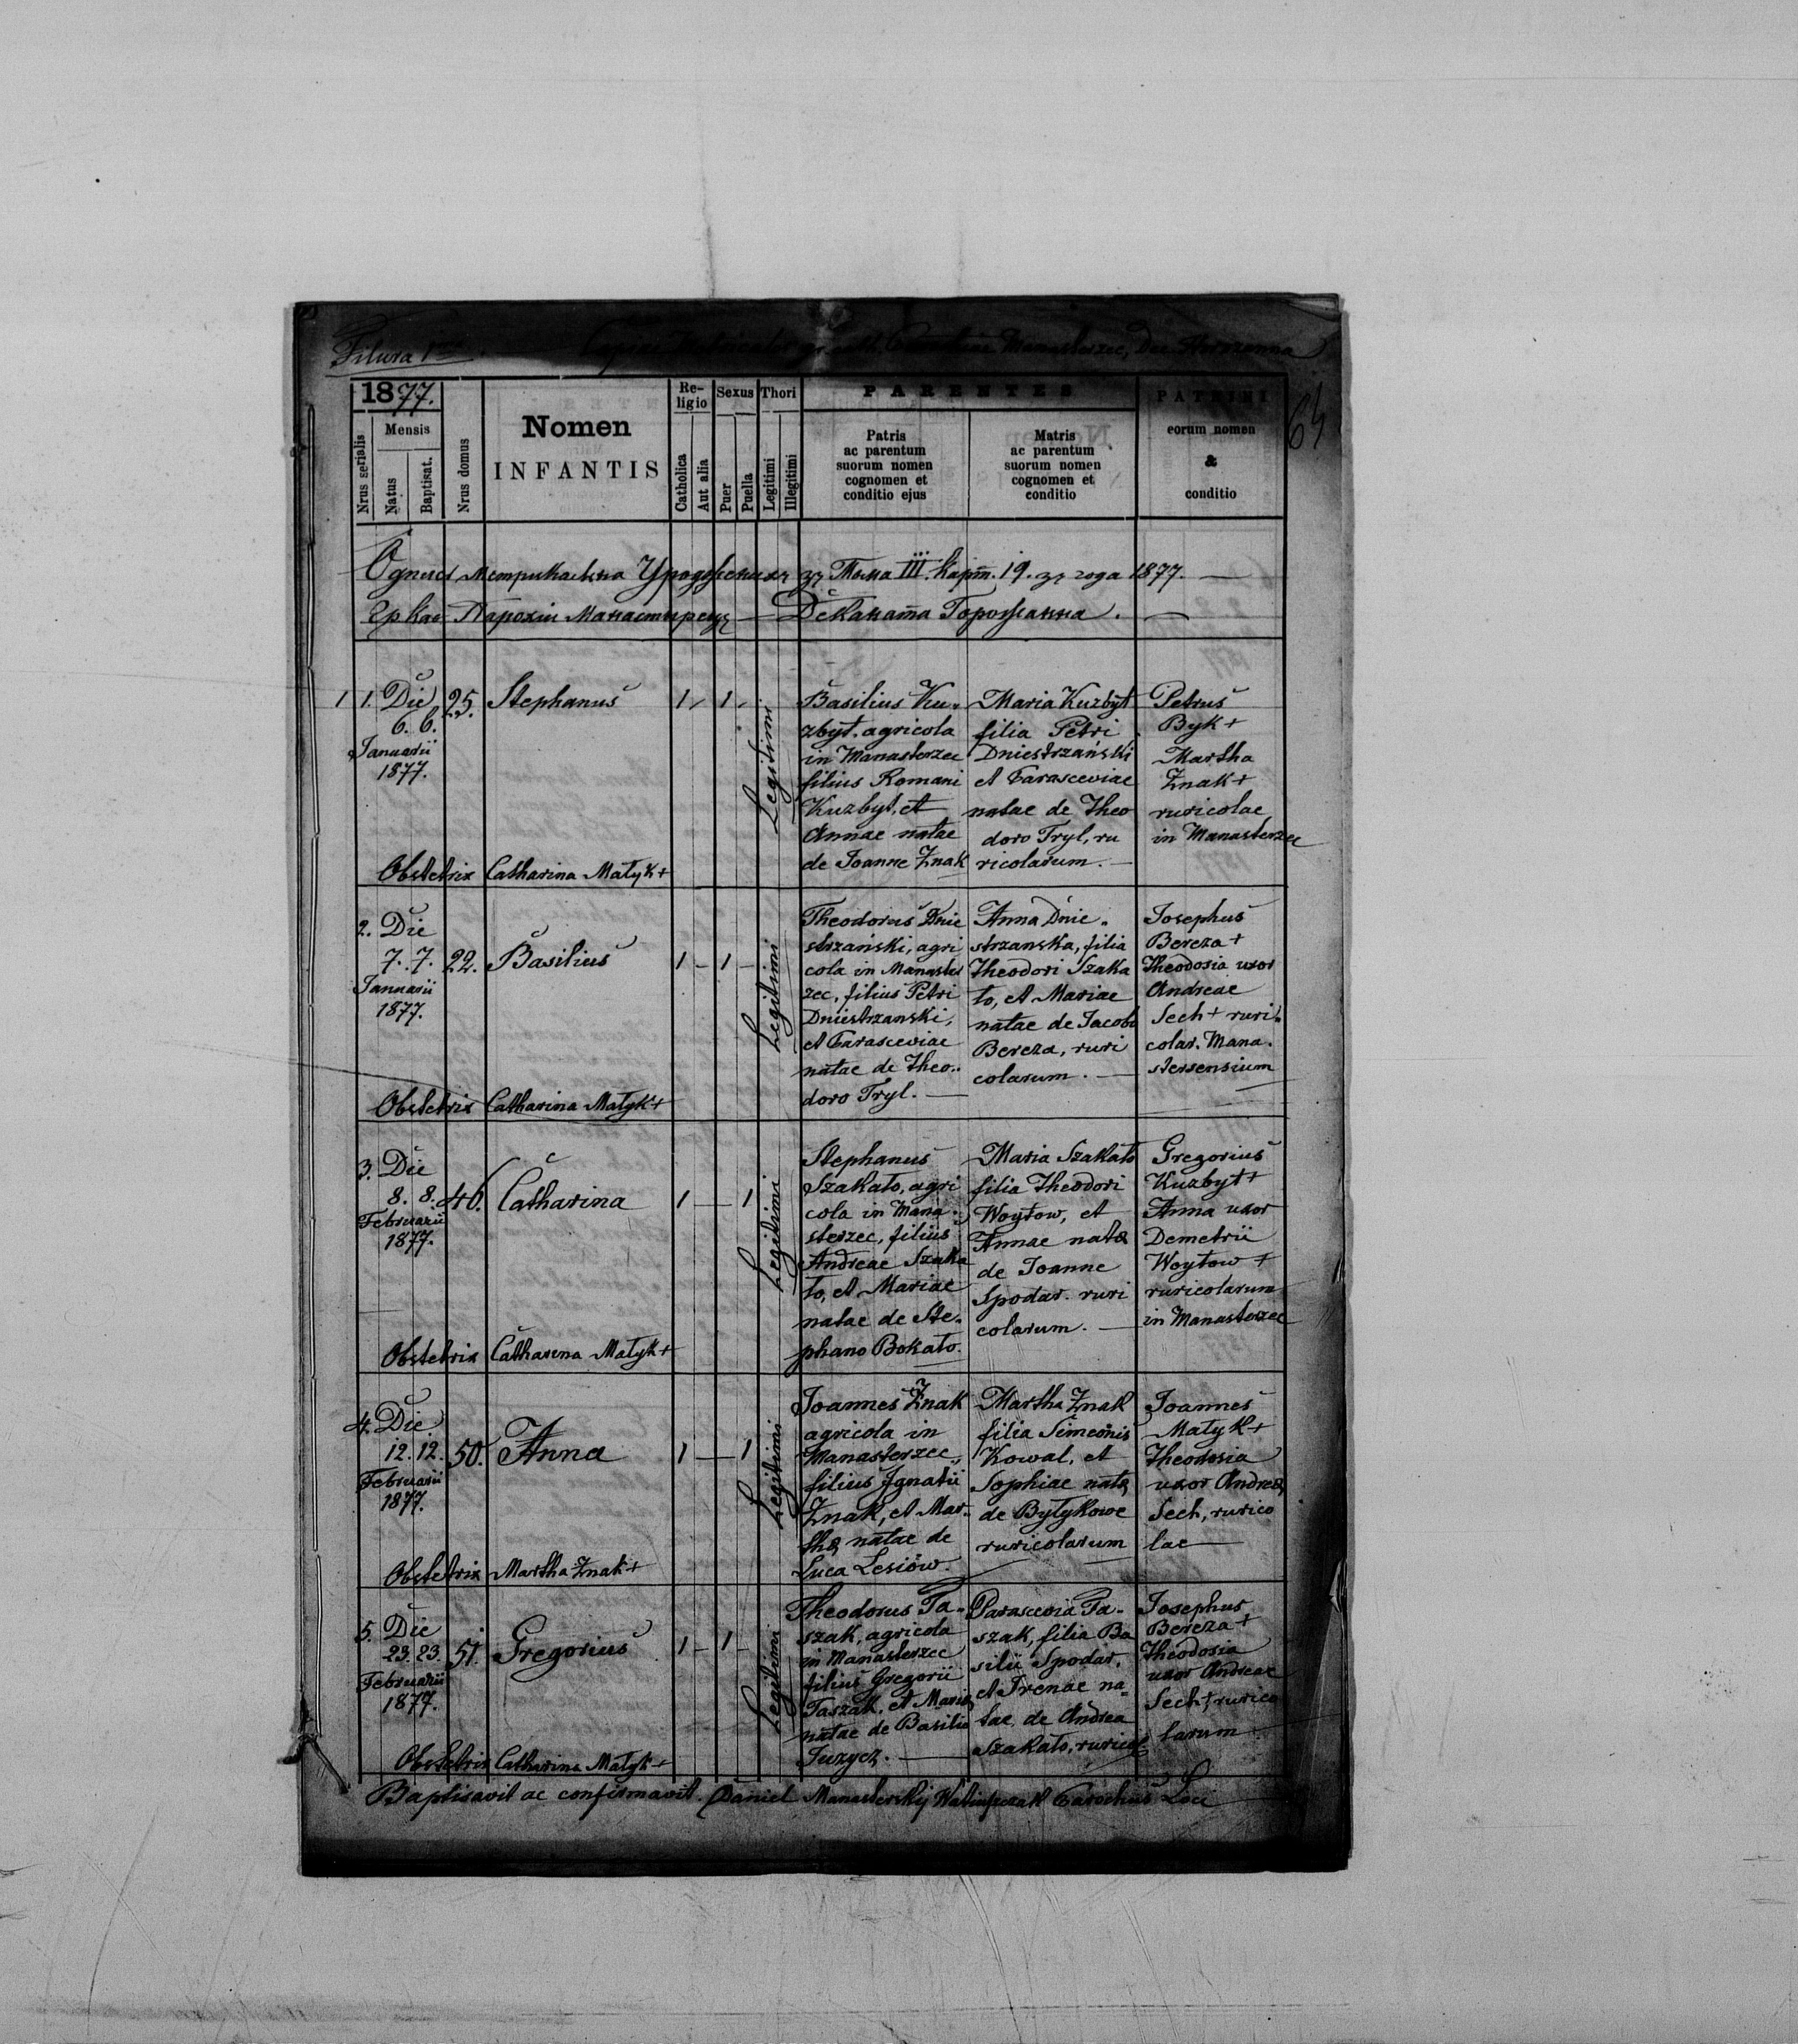 Filura 1ma Copiae Metricales gr. cath. Parochiae Manasterzec, Dec. Horożanna
64
1877.
Nrus serialis
Mensis
Natus
Baptisat.
Nrus domus
Nomen
INFANTIS
Re-
ligio
Catholica
Aut alia
Sexus
Puer
Puella
Thori
Legitimi
Illegitimi
PARENTES
Patris
ac parentum
suorum nomen
cognomen et
conditio ejus
Matris
ac parentum
suorum nomen
cognomen et
conditio
PATRINI
eorum nomen
&
conditio
Метрикальна Урожденихъ зъ Тома III. Карт. 19. зъ года 1877. —
гр кат Парохіи Манастирець — Деканата Горожанна. —
1 1. Die 25. Stephanus 1 - 1 -
6. 6.
Januarii
1877.
Legitimi
Basilius Ku-
zbyt. agricola
in Manasterzec
filius Romani
Kuzbyt, et
Annae natae
de Joanne Znak
Maria Kuzbyt
filia Petri
Dniestrzański
et Parasceviae
natae de Theo
doro Tryl, ru
ricolarum. —
Petrus
Byk +
Martha
Znak +
ruricolae
in Manasterzec
Obstetrix Catharina Małyk +
2. Die
7. 7. 22. Basilius 1 - 1 -
Januarii
1877.
Legitimi
Theodorus Dnie
strzański, agri
cola in Manaster
zec, filius Petri
Dniestrzanski,
et Parasceviae
natae de Theo..
doro Tryl. —
Anna Dnie..
strzanska, filia
Theodori Szaka
ło, et Mariae
natae de Jacobo
Bereza, ruri
colarum. —
Josephus
Bereza +
Theodosia uxor
Andreae
Sech + ruri..
colar. Mana.
stersensium
Obstetrix Catharina Małyk +
3. Die
8. 8. 46. Catharina 1 — 1
Februarii
1877.
Legitimi
Stephanus
Szakało, agri
cola in Mana..
sterzec, filius
Andreae Szaka
ło, et Mariae
natae de Ste..
phano Bokało.
Maria Szakało
filia Theodori
Woytow, et
Annae natae
de Joanne
Spodar. ruri
colarum. —
Gregorius
Kuzbyt +
Anna uxor
Demetrii
Woytow +
ruricolarum
in Manasterzec
Obstetrix Catharina Małyk +
4. Die
12. 12. 50. Anna 1 — 1
Februarii
1877.
Legitimi
Joannes Znak
agricola in
Manasterzec,
filius Ignatii
Znak, et Mar..
thae natae de
Luca Lesiów.
Martha Znak
filia Simeonis
Kowal, et
Sophiae natae
de Bytykowe
ruricolarum
Joannes
Małyk +
Theodosia
uxor Andreae
Sech, rurico
lae —
Obstetrix Martha Znak +
5. Die
23. 23. 51. Gregorius 1 - 1 -
Februarii
1877.
Legitimi
Theodorus Ta..
szak, agricola
in Manasterzec
filius Gregorii
Taszak, et Mariae
natae de Basilio
Juzycz. —
Parascevia Ta..
szak, filia Ba
silii Spodar,
et Irenae na..
tae de Andrea
Szakało, rurico
Josephus
Bereza +
Theodosia
uxor Andreae
Sech +, rurico
larum
Obstetrix Catharina Małyk +
Baptisavit ac confirmavit. Daniel Manasterskij Parochus Loci